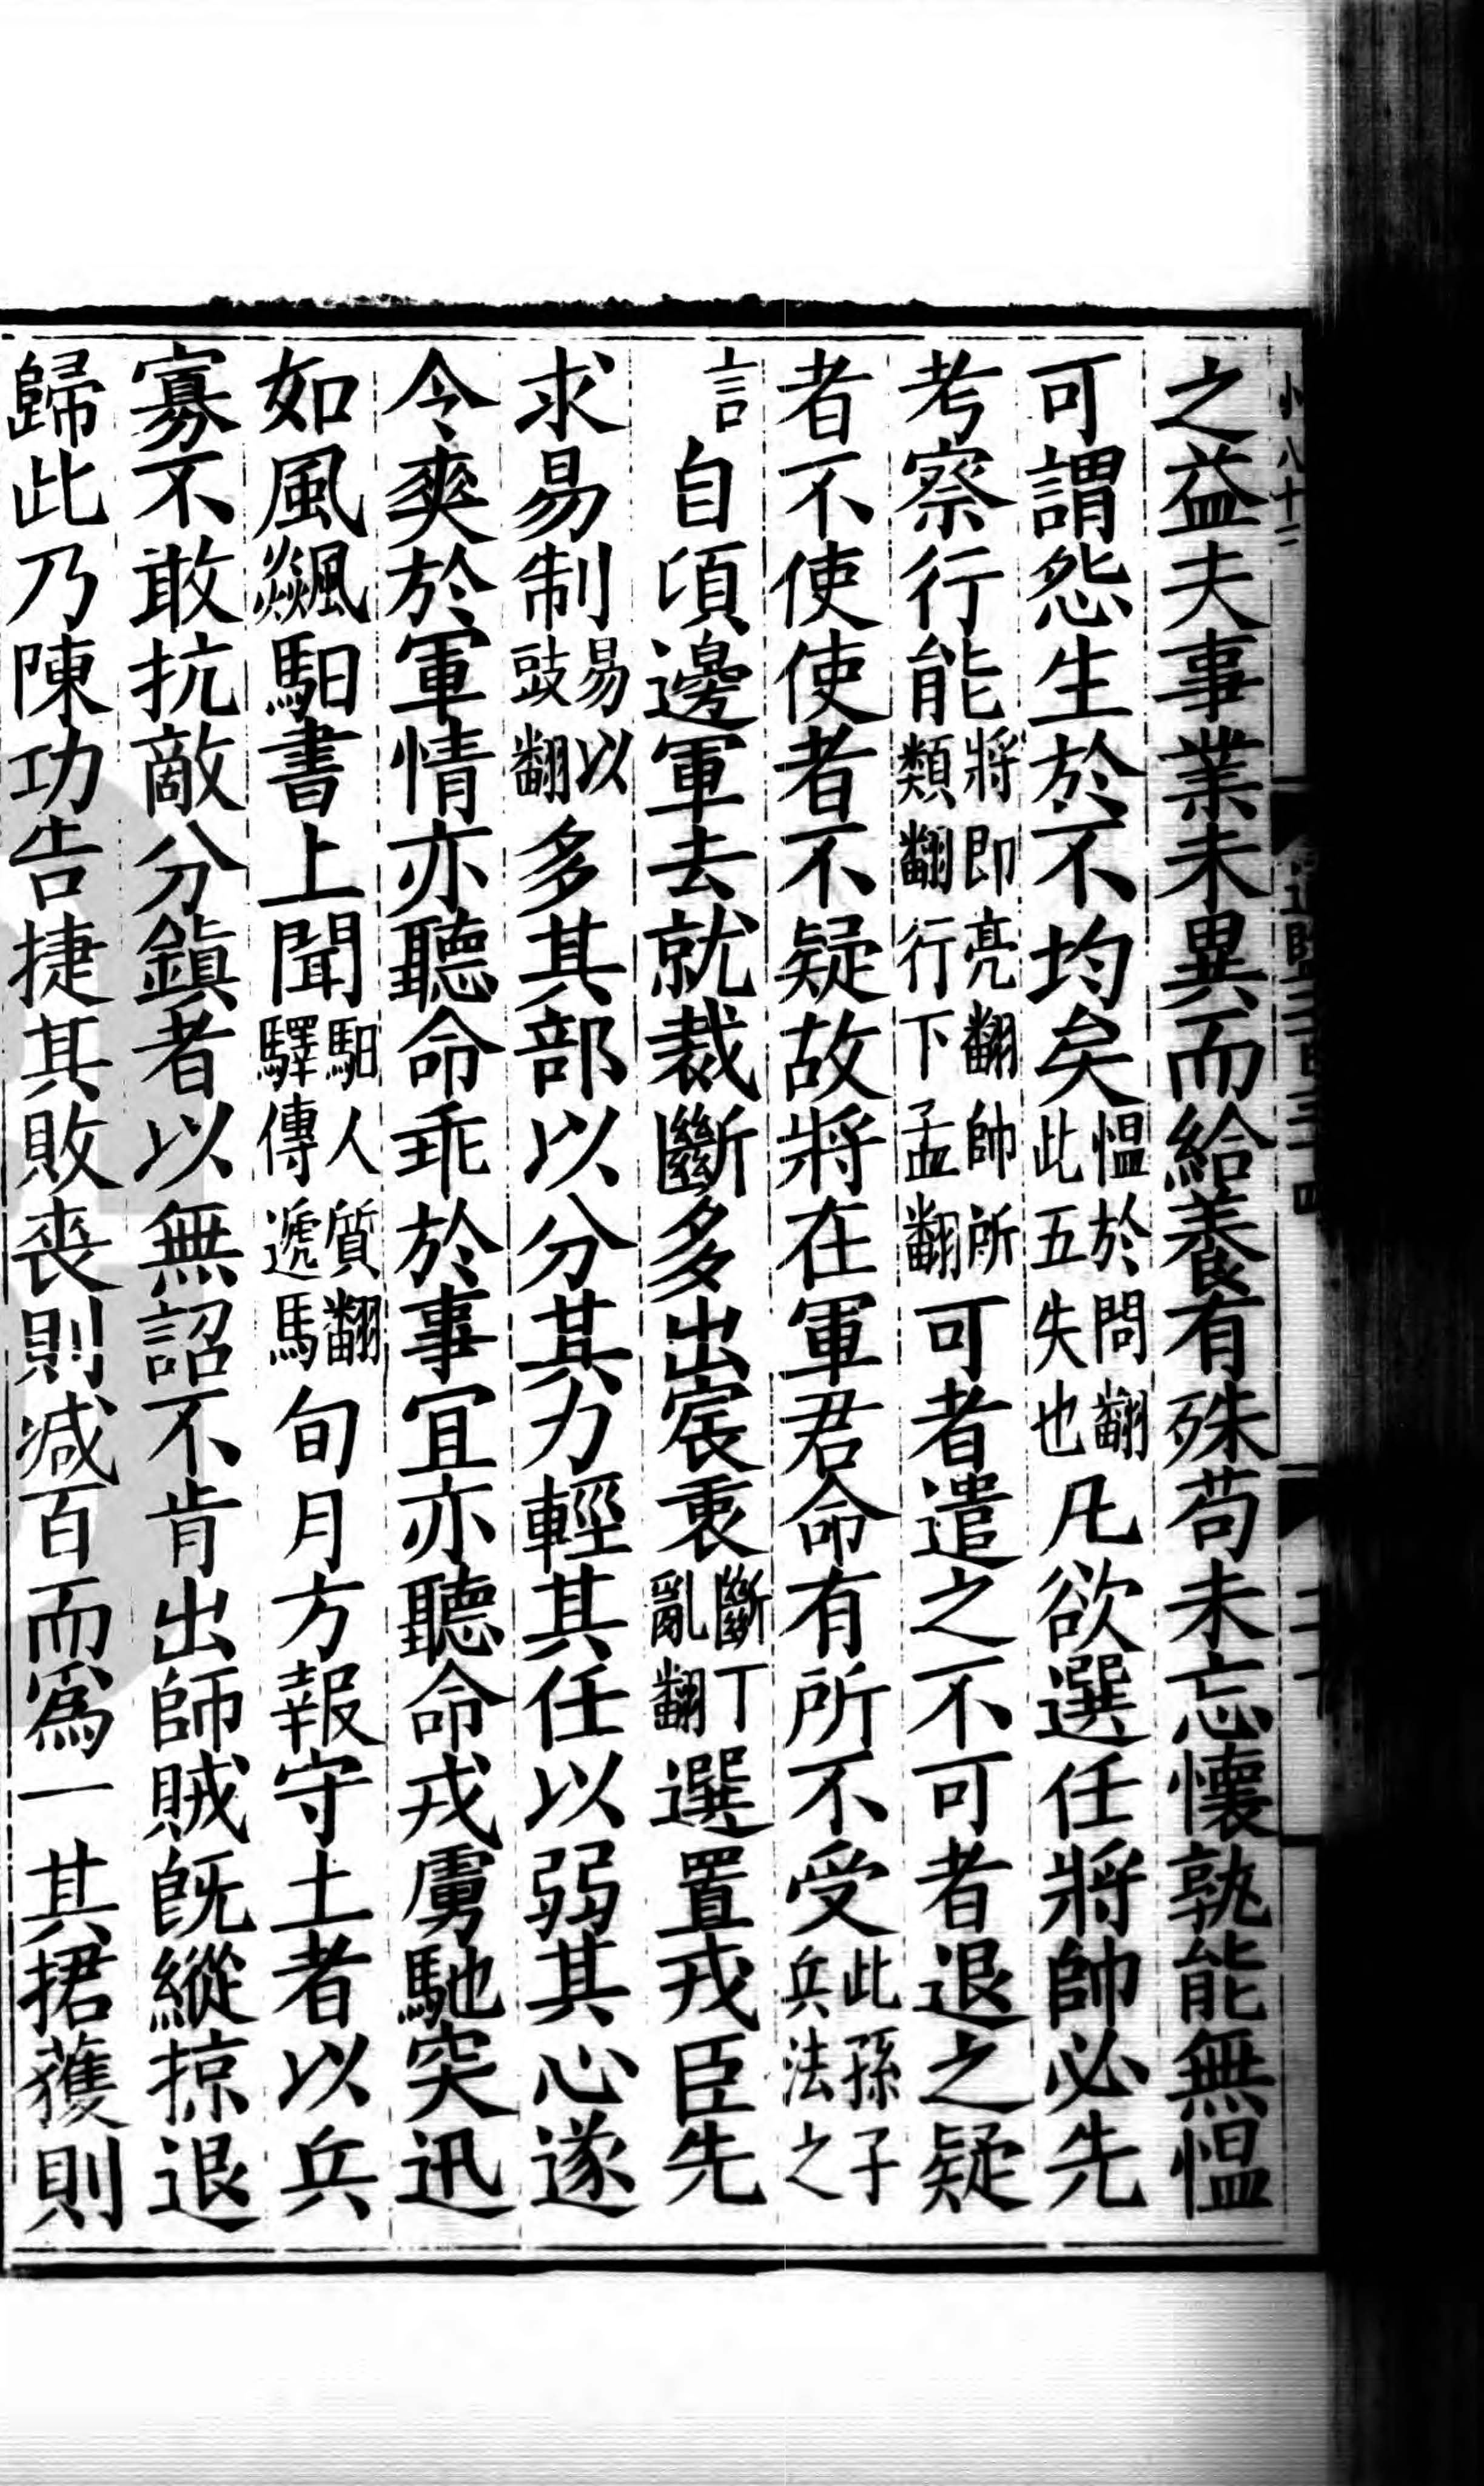 之益夫事業未異而給養有殊苟未忘懷孰能無慍
可謂怨生於不均矣慍於問翻此五失也凡欲選任將帥必先
考察行能將即亮翻帥所類翻行下孟翻可者遣之不可者退之疑
者不使使者不疑故將在軍君命有所不受此孫子兵法之
言自頃邊軍去就裁斷多出宸衷斷丁亂翻選置戎臣先
求易制易以豉翻多其部以分其力輕其任以弱其心遂
令爽於軍情亦聽命乖於事宜亦聽命戎虜馳突迅
如風飈馹書上聞馹人質翻驛傳遞馬旬月方報守土者以兵
寡不敢抗敵分鎮者以無詔不肯出師賊既縱掠退
歸此乃陳功告捷其敗喪則减百而為一其捃獲則